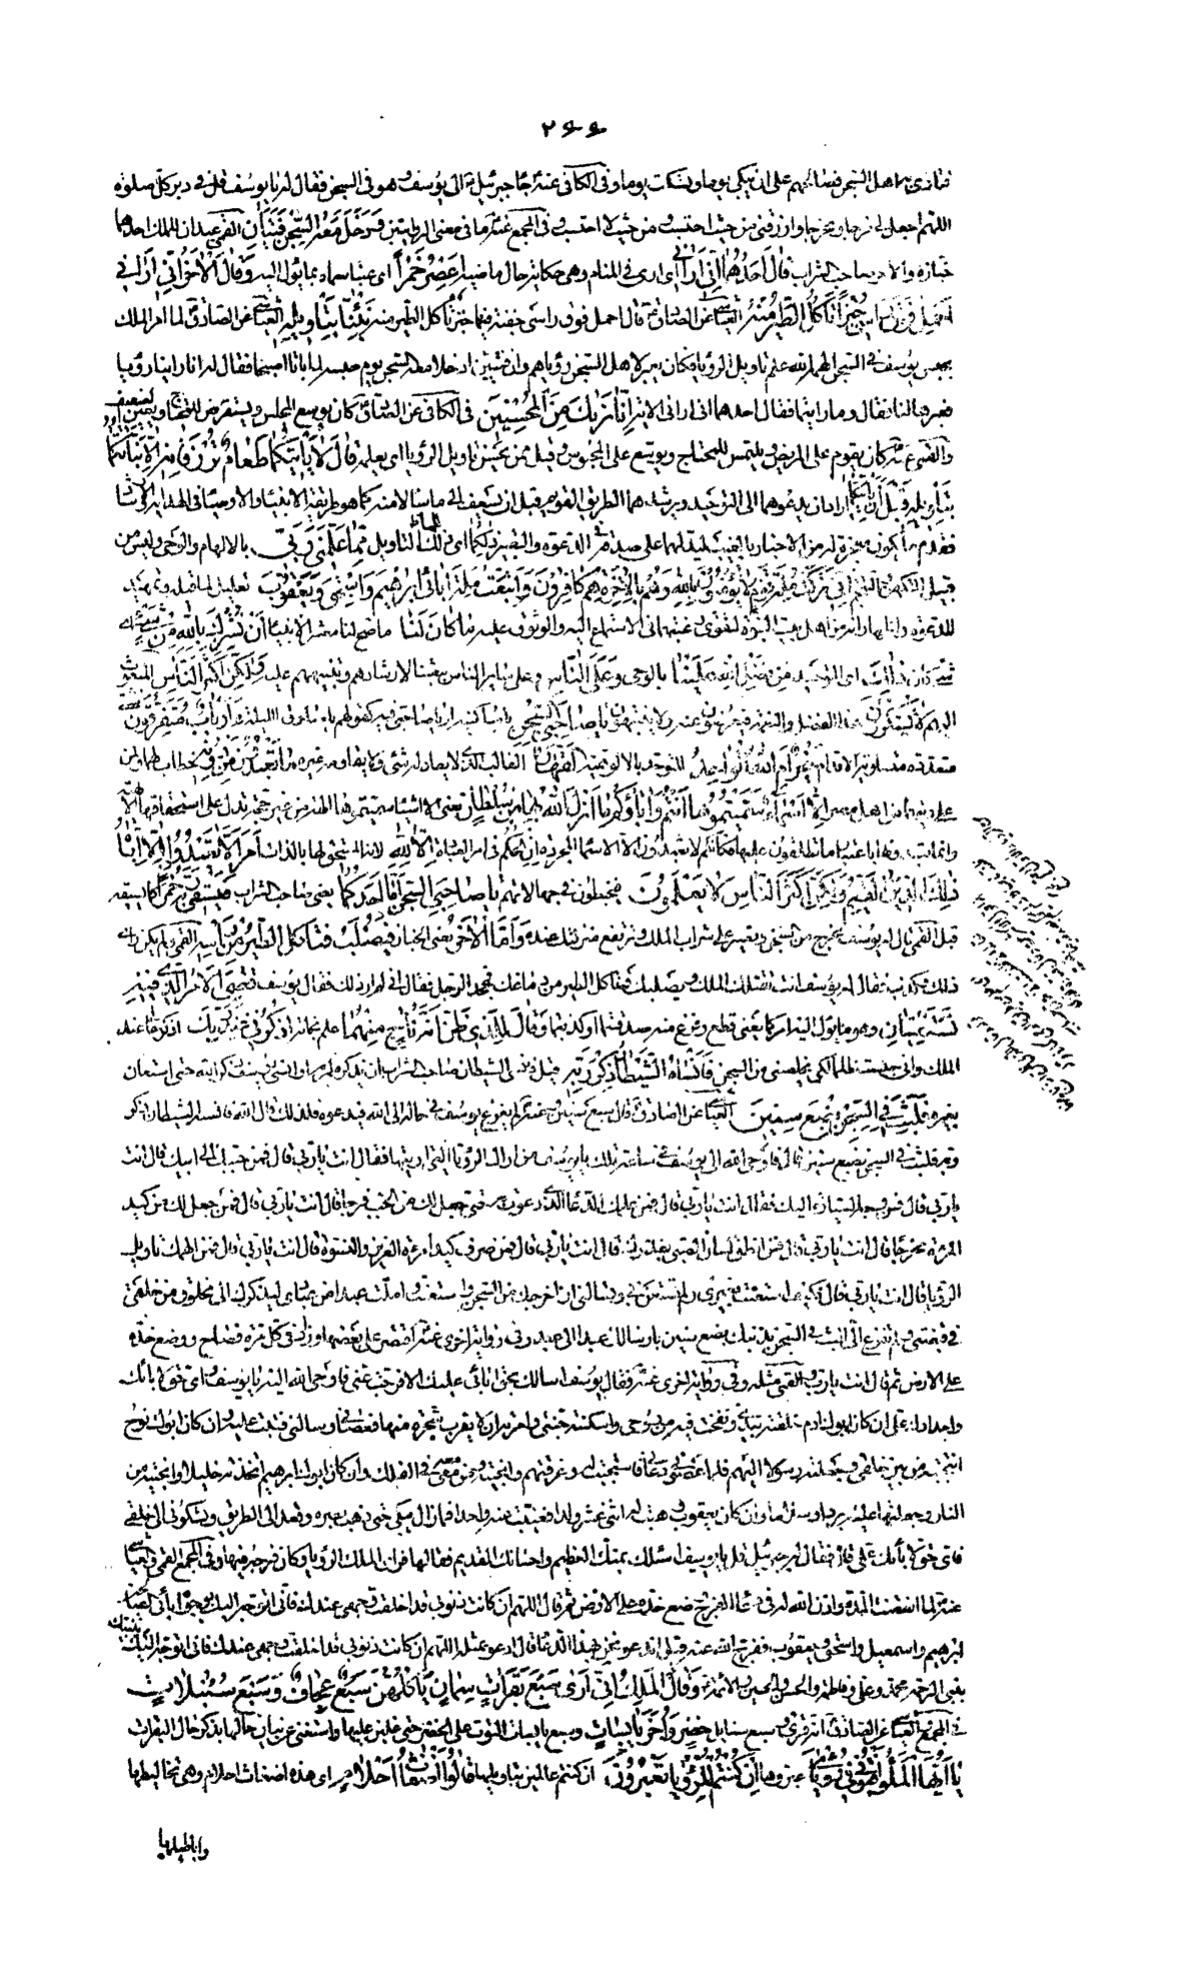 ٢٤٤
فتاذى به اهل السجن فصالحهم على ان يبكى يوما ويسكت يوما وفى الكافى عنه جاء جبرئيل الى يوسف وهو فى السجن فقال له يا يوسف قل فى دبر كل صلوة
اللهم اجعل لى فرجا ومخرجا وارزقنى من حيث احتسب ومن حيث لا احتسب وفى المجمع عنه ما فى معنى الروايتين وَدَخَلَ مَعَهُ السِّجْنَ فَتَيَانِ القمى عبدان للملك احدهما
خبازه والاخر صاحب الشراب قَالَ أَحَدُهُمَا إِنِّي أَرَانِي اى ارى فى المنام وهى حكاية حال ماضية أَعْصِرُ خَمْراً اى عنبا سماه بما يؤل اليه وَقَالَ الْآخَرُ إِنِّي أَرَانِي
أَحْمِلُ فَوْقَ رَأْسِي خُبْزاً تَأْكُلُ الطَّيْرُ مِنْهُ العياشى عن الصادق قال احمل فوق راسى جفنة فيها خبز تأكل الطير منه نَبِّئْنَا بِتَأْوِيلِهِ العياشى عن الصادق لما امر الملك
بحبس يوسف فى السجن الهمه الله علم تاويل الرؤيا فكان يعبر لاهل السجن رؤياهم وان فتيين ادخلا معه السجن يوم حبسه لما باتا اصبحا فقالا له انا راينا رؤيا
فعبرها لنا فقال وما رايتما فقال احدهما انى ارانى الاية إِنَّا نَرَاكَ مِنَ الْمُحْسِنِينَ فى الكافى عن الصادق كان يوسع المجلس ويستقرض للمحتاج ويعين الضعيف
والقمى عنه كان يقوم على المريض ويلتمس للمحتاج ويوسع على المحبوس وقيل ممن يحسن تاويل الرؤيا اى يعلمه قَالَ لَا يَأْتِيكُمَا طَعَامٌ تُرْزَقَانِهِ إِلَّا نَبَّأْتُكُمَا
بِتَأْوِيلِهِ قَبْلَ أَنْ يَأْتِيَكُمَا اراد ان يدعوهما الى التوحيد ويرشدهما الطريق القويم قبل ان يسعف الى ما سالا منه كما هو طريقة الانبياء والاوصياء فى الهداية والارشاد
فقدم ما يكون معجزة له من الاخبار بالغيب ليدلهما على صدقه فى الدعوة والتعبير ذَلِكُمَا اى ذلك التاويل مِمَّا عَلَّمَنِي رَبِّي بالالهام والوحى وليس من
قبيل التكهن والتنجم إِنِّي تَرَكْتُ مِلَّةَ قَوْمٍ لَا يُؤْمِنُونَ بِاللَّهِ وَهُمْ بِالْآخِرَةِ هُمْ كَافِرُونَ وَاتَّبَعْتُ مِلَّةَ آبَائِي إِبْرَاهِيمَ وَإِسْحَقَ وَيَعْقُوبَ تعليل لما قبله وتمهيد
للدعوة واظهار انه من اهل بيت النبوة لتقوى رغبتهما فى الاستماع اليه والوثوق عليه مَا كَانَ لَنَا ما صح لنا معشر الانبياء أَنْ نُشْرِكَ بِاللَّهِ مِنْ شَيْءٍ
ذَلِكَ اى التوحيد مِنْ فَضْلِ اللَّهِ عَلَيْنَا بالوحى وَعَلَى النَّاسِ وعلى سائر الناس ببعثنا لارشادهم وتنبيههم عليه وَلَكِنَّ أَكْثَرَ النَّاسِ المبعوث
اليهم لَا يَشْكُرُونَ هذا الفضل والنعمة فيعرضون عنه ولا ينتبهون يَا صَاحِبَيِ السِّجْنِ أَأَرْبَابٌ مُتَفَرِّقُونَ
متعددة متساوية الاقدام خَيْرٌ أَمِ اللَّهُ الْوَاحِدُ المتوحد بالالوهية الْقَهَّارُ الغالب الذى لا يعادله شئ ولا يقاومه غيره مَا تَعْبُدُونَ مِنْ دُونِهِ خطاب لهما ولمن
على دينهما من اهل مصر إِلَّا أَسْمَاءً سَمَّيْتُمُوهَا أَنْتُمْ وَآبَاؤُكُمْ مَا أَنْزَلَ اللَّهُ بِهَا مِنْ سُلْطَانٍ يعنى الا اشياء سميتموها الهة من غير حجة تدل على استحقاقها الالهية
إِنِ الْحُكْمُ فى امر العبادة إِلَّا لِلَّهِ لانه المستحق لها بالذات أَمَرَ أَلَّا تَعْبُدُوا إِلَّا إِيَّاهُ
ذَلِكَ الدِّينُ الْقَيِّمُ وَلَكِنَّ أَكْثَرَ النَّاسِ لَا يَعْلَمُونَ فيخبطون فى جهالاتهم يَا صَاحِبَيِ السِّجْنِ أَمَّا أَحَدُكُمَا يعنى صاحب الشراب فَيَسْقِي رَبَّهُ خَمْراً كما يسقيه
قبل القمى قال له يوسف تخرج من السجن وتصير على شراب الملك وترتفع منزلتك عنده وَأَمَّا الْآخَرُ يعنى الخباز فَيُصْلَبُ فَتَأْكُلُ الطَّيْرُ مِنْ رَأْسِهِ القمى ولم يكن راى
ذلك وكذب فقال له يوسف انت يقتلك الملك ويصلبك وتاكل الطير من دماغك فجحد الرجل فقال انى لم ار ذلك فقال يوسف قُضِيَ الْأَمْرُ الَّذِي فِيهِ
تَسْتَفْتِيَانِ وهو ما يؤل اليه امركما يعنى قطع وفرغ منه صدقتما او كذبتما وَقَالَ لِلَّذِي ظَنَّ أَنَّهُ نَاجٍ مِنْهُمَا علم نجاته اذْكُرْنِي عِنْدَ رَبِّكَ اذكر حالى عند
الملك وانى حبست ظلما لكى يخلصنى من السجن فَأَنْسَاهُ الشَّيْطَانُ ذِكْرَ رَبِّهِ قيل فانسى الشيطان صاحب الشراب ان يذكره لربه او انسى يوسف ذكر الله حتى استعان
بغيره فَلَبِثَ فِي السِّجْنِ بِضْعَ سِنِينَ العياشى عن الصادق قال سبع سنين وعنه لم يفزع يوسف فى حاله الى الله فيدعوه فلذلك قال الله فانساه الشيطان ذكر
ربه فلبث فى السجن بضع سنين قال فاوحى الله الى يوسف فى ساعته تلك يا يوسف من اراك الرؤيا التى رايتها فقال انت يا ربى قال فمن حببك الى ابيك قال انت
يا ربى قال فمن وجه السيارة اليك فقال انت يا ربى قال فمن علمك الدعاء الذى دعوت به حتى جعل لك من الجب فرجا قال انت يا ربى قال فمن جعل لك من كيد
المرءة مخرجا قال انت يا ربى قال فمن انطق لسان الصبى بعذرك قال انت يا ربى قال فمن صرف كيد امرءة العزيز والنسوة قال انت يا ربى قال فمن الهمك تاويل
الرؤيا قال انت يا ربى قال فكيف استغثت بغيرى ولم تستغث بى وتسألنى ان اخرجك من السجن واستغثت واملت عبدا من عبادى ليذكرك الى مخلوق من خلقى
فى قبضتى ولم تفزع الى البث فى السجن بذنبك بضع سنين بارسالك عبدا الى عبد وفى رواية اخرى عنه اقتصر على بعضها وزاد فى كل مرة فصاح ووضع خده
على الارض ثم قال انت يا رب والقمى مثله وفى رواية اخرى عنه فقال يوسف اسالك بحق ابائى عليك الا فرجت عنى فاوحى الله اليه يا يوسف واى حق لابائك
واجدادك على ان كان ابوك ادم خلقته بيدى ونفخت فيه من روحى واسكنته جنتى وامرته ان لا يقرب شجرة منها فعصانى وسالنى فتبت عليه وان كان ابوك نوح
انتجبته من بين خلقى وجعلته رسولا اليهم فلما عصوا دعانى فاستجبت له وغرقتهم وانجيته ومن معه فى الفلك وان كان ابوك ابرهيم اتخذته خليلا وانجيته من
النار وجعلتها عليه بردا وسلاما وان كان يعقوب وهبت له اثنى عشر ولدا فغيبت عنه واحدا فما زال يبكى حتى ذهب بصره وقعد الى الطريق يشكونى الى خلقى
فاى حق لابائك على قال فقال له جبرئيل قل يا يوسف اسئلك بمنك العظيم واحسانك القديم فقالها فراى الملك الرؤيا وكان فرجه فيها وفى المجمع والقمى والعياشى
عنه لما انقضت المدة واذن الله له فى دعاء الفرج وضع خده على الارض ثم قال اللهم ان كانت ذنوبى قد اخلقت وجهى عندك فانى اتوجه اليك بوجه ابائى الصالحين
ابرهيم واسمعيل واسحق ويعقوب ففرج الله عنه قيل اندعو نحن بهذا الدعاء فقال ادعو بمثله اللهم ان كانت ذنوبى قد اخلقت وجهى عندك فانى اتوجه اليك بنبيك
نبى الرحمة محمد وعلى وفاطمة والحسن والحسين والائمة وَقَالَ الْمَلِكُ إِنِّي أَرَى سَبْعَ بَقَرَاتٍ سِمَانٍ يَأْكُلُهُنَّ سَبْعٌ عِجَافٌ وَسَبْعَ سُنْبُلَاتٍ
فى المجمع والعياشى عن الصادق انه قرئ وسبع سنابل خُضْرٍ وَأُخَرَ يَابِسَاتٍ وسبع يابسات التوت على الخضر حتى غلبن عليها واستغنى عن بيان حالها بذكر حال البقرات
يَا أَيُّهَا الْمَلَأُ أَفْتُونِي فِي رُؤْيَايَ عبروها إِنْ كُنْتُمْ لِلرُّؤْيَا تَعْبُرُونَ ان كنتم عالمين بتاويلها قَالُوا أَضْغَاثُ أَحْلَامٍ اى هذه اضغاث احلام وهى تخاليطها
واباطيلها